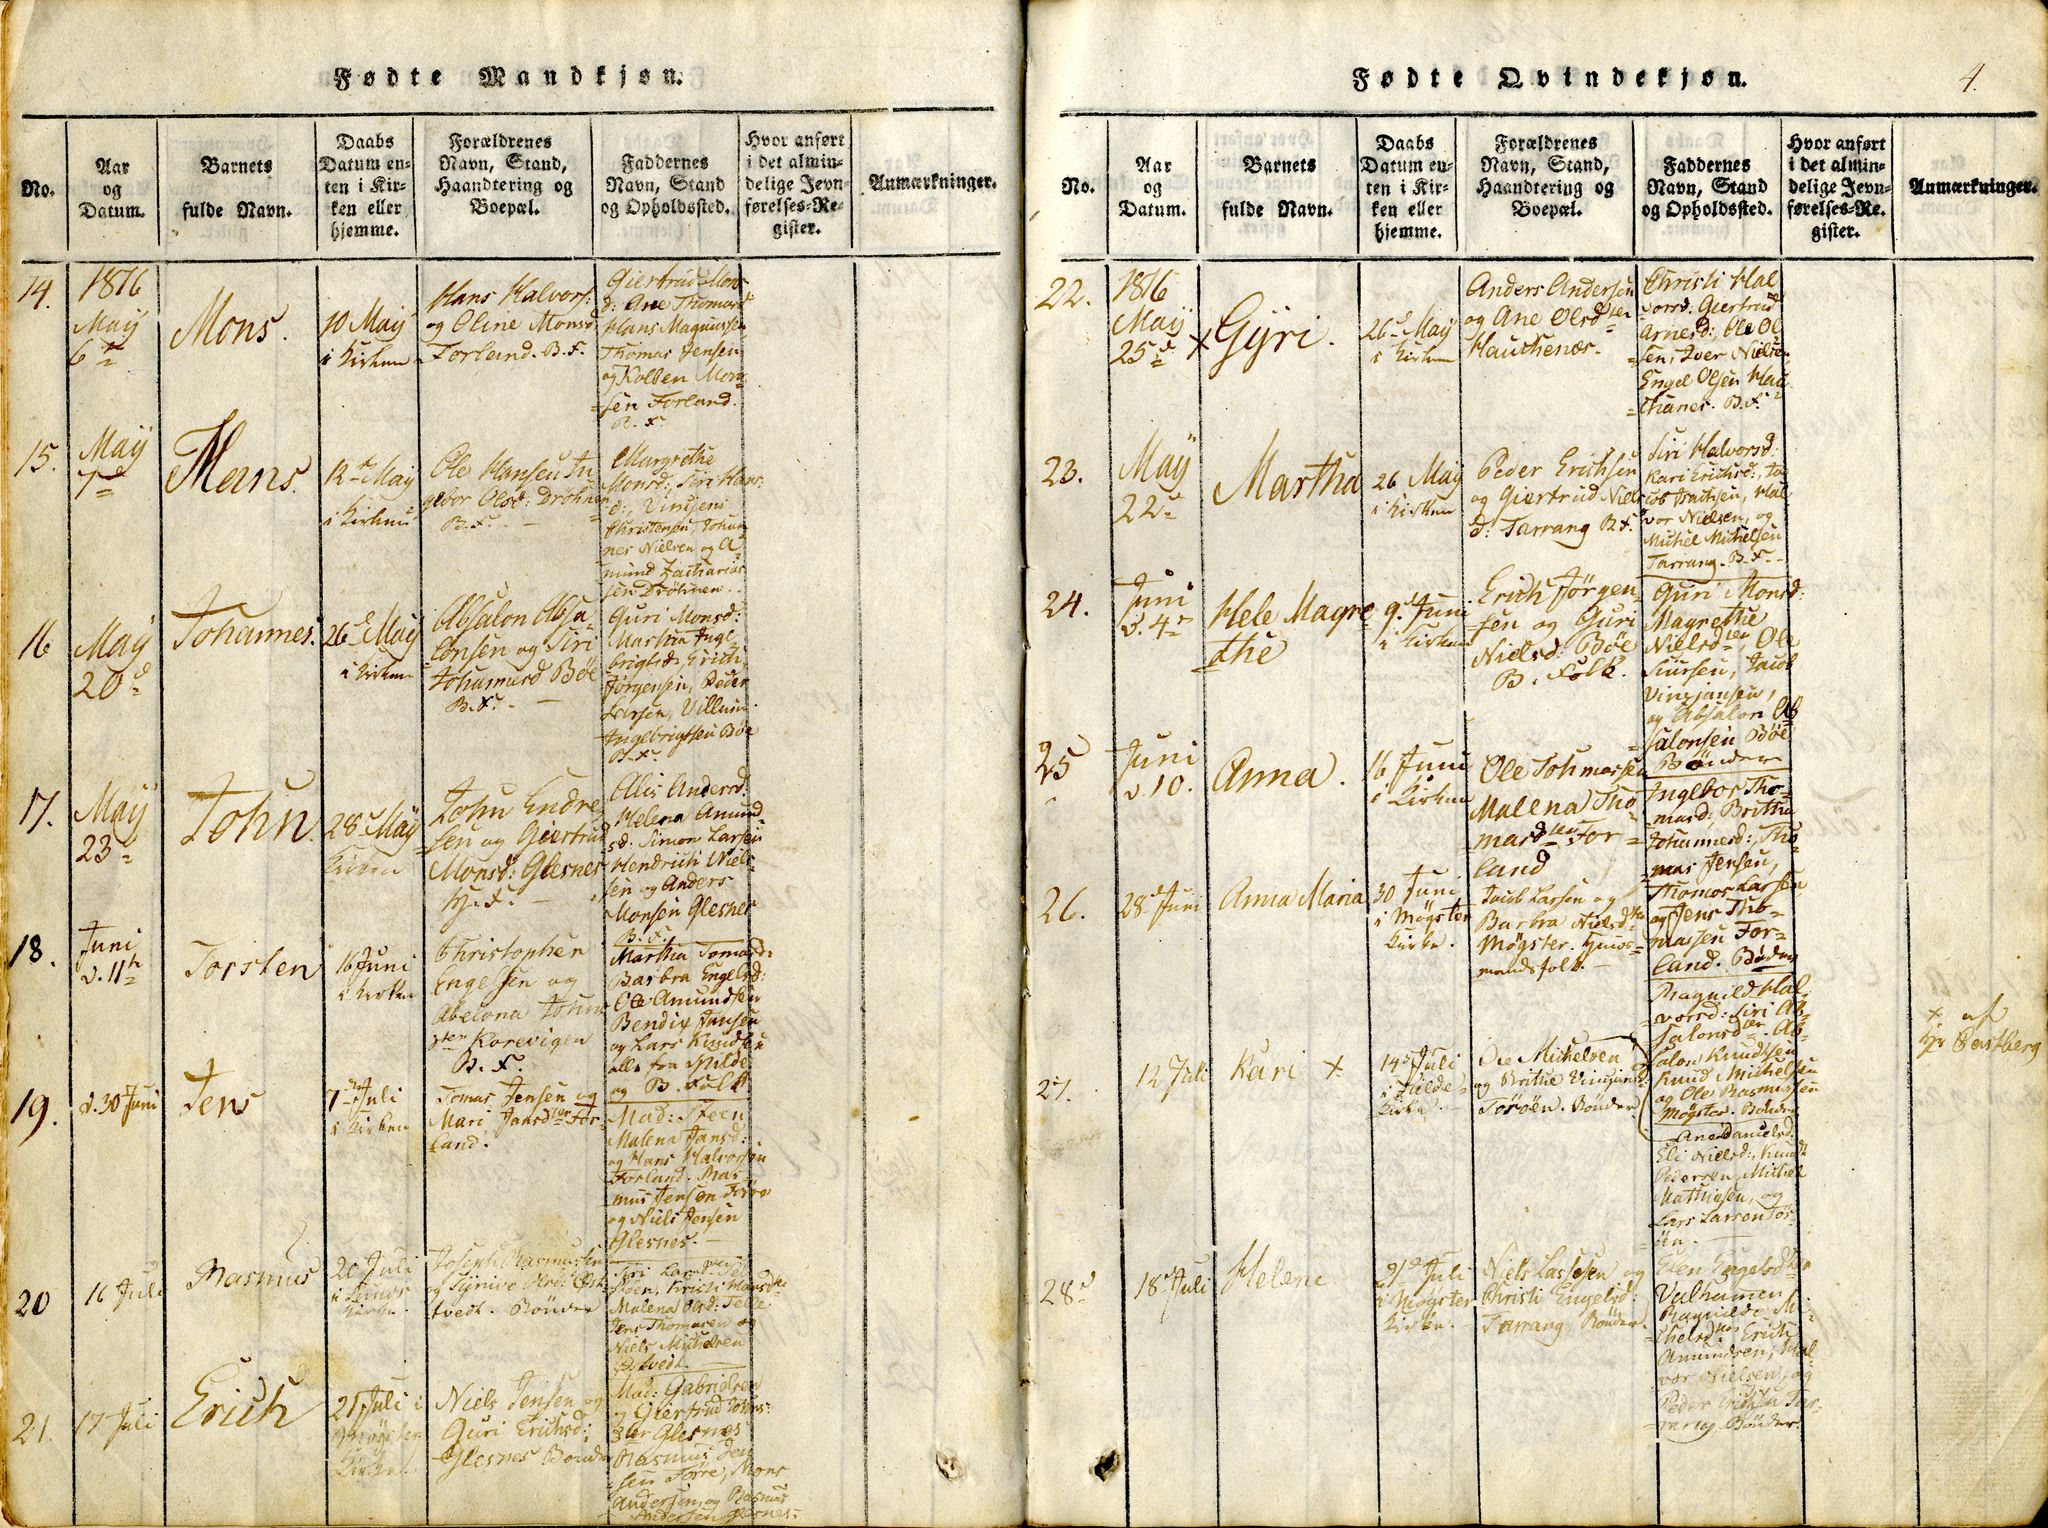 Fødte Mandkjøn.
No.
Aar
og
Datum.
Barnets
fulde Navn.
Daabs
Datum en-
ten i Kir-
ken eller
hjemme.
Forældrenes
Navn, Stand,
Haandtering og
Boepæl.
Faddernes
Navn, Stand
og Opholdssted.
Hvor anført
i det almin-
delige Jevn-
førelses-Re-
gister.
Anmærkninger.
14.
1816
May
6te
Mons.
10 May
i Kirken
Hans Halvors:
og Oline Monsd
Forland. B. F.
Giertrud Mons
d: Ane Thomasd
Hans Magnussen
Thomas Jensen
og Kolben Mon-
sen Forland.
B. F.
15.
May
7d
Mans.
12te May
i Kirken
Ole Hansen In
gebor Olsd: Drøhnen
B. F.
Margrethe
Monsd: Siri Hans:
d:, Vinsjens
Christensen, Johan
nes Nielsen og A-
mund Zacharias
sen Drøhnen.
16
May
20d
Johannes.
26d May
i Kirken
Absalon Absa-
lonsen og Siri
Johannesd Bøe
B. F.
Guri Monsd:
Martha Inge
brigtsd, Erich
Jørgensen, Peder
Larsen, Villum
Ingebrigtsen Bøe
B. F.
17.
May
23
John.
28d May
Kirken
John Endre
sen og Giertrud
Monsd: Glesnes
Hj. F.
Alis Andersd.
Helena Amund-
sd: Simon Larsen
Hendrich Niels-
sen og Anders
Monsen Glesnes
B. F.
18.
Juni
d. 11te
Torsten
16 Juni
i Kirken
Christopher
Engelsen og
Abelona Johns
dter Korevigen
B. F.
Martha Tomasd:
Barbra Engelsd:
Ole Amundsen
Bendix Jansen
og Lars Knudsen
alle fra Spilde
og B. Folk
19.
d. 30 Juni
Jens
7de Juli
i Kirken
Tomas Jensen og
Mari Jansdter For-
land.
Mad: Steen
Malena Jansd:
og Hans Halvorsen
Forland. Ras-
mus Jensen Førre
og Niels Jensen
Glesnes.
20
16 Juli
Rasmus
20 Juli
Kirke.
Joseph Rasmussen
og Synive Olsd: Øst-
tvedt. Bönder
Malena Olsd: Telle
Jens Thomasen og
Niels Michelsen
Østvedt.
21.
17 Juli
Erich
21 Juli i
Møgster
Kirke.
Niels Jensen og
Guri Erichsd:
Glesnes Bonder
Mad: Gabrielsen
og Giertrud Johns:
dter Glesnæs
Rasmus Jen
sen Førre, Mons
Andersen, og Rasmus
Andersen Glesnes
Fødte Qvindekjøn.
4.
No.
Aar
og
Datum.
Barnets
fulde Navn.
Daabs
Datum en-
ten i Kir-
ken eller
hjemme.
Forældrenes
Navn, Stand,
Haandtering og
Boepæl.
Faddernes
Navn, Stand
og Opholdssted.
Hvor anført
i det almin-
delige Jevn-
førelses-Re-
gister.
Anmærkninger.
22.
1816
May
25d
× Gyri.
26d May
i Kirken
Anders Andersen
og Ane Olsdter
Hauthenæs.
Christi Hal
vorsd: Giertrud
Arnesd:, Ole Ol
sen, Iver Nielsen
Engel Olsen Hau
thanes. B. F.
23.
May
22d
Martha
26 May
i Kirken
Peder Erichsen
og Giertrud Niels
d: Tarrang B. F.
Siri Halvorsd:
Kari Erichsd:, Ja-
cob Isachsen, Hal
vor Nielsen, og
Michel Michelsen
Tarrang. B. F.
24.
Juni
d. 4d
Hele Magre
the
9d Juni
i Kirken
Erich Jørgen
sen og Guri
Nielsd: Bøe
B. Folk.
Guri Monsd:
Magrethe
Nielsdter, Ole
Siursen, Jacob
Vinsjansen,
og Absalon Ab
salonsen Bøe
Bönder
25
Juni
d. 10.
Anna.
16 Juni
i Kirken
Ole Tohmassen
Malena Tho
masdter For-
land
Ingebor Tho-
masd: Britha
Johannesd:, Tho-
mas Jensen,
Thomas Larsen
og Jens Tho-
massen For-
land. Bønder
26.
28d Juni
Anna Maria
30 Juni
i Møgster
Kirke.
Jacob Larsen og
Barbra Nielsd
Møgster. Huus-
mandsfolk.
Magnild Hal-
vorsd: Siri Ab-
salonsdter Ab-
salon Knudtsen
Knud Michelsen
og Ole Rasmussen
Møgster. Bønder
27.
12 Juli
Kari ×
14d Juli
Kirke
Ole Michelsen
og Brithe Vinsjansd:
Torøen. Bönder
Ane Danielsd.
Eli Nielsd:, Knudt
Pedersen, Michel
Mathiasen, og
Lars Larsen Tor-
øen.
× af
Hr Bastberg
28d
18d Juli
Helene
21d Juli
i Møgster
Kirke.
Niels Lassesen og
Christi Engelsd:
Tarrang. Bönder.
Valhamer
Ragnilde Mi-
chelsd Erich
Amundsen, Hal-
vor Nielsen, og
Peder Erichsen Tar-
rang Bönder.